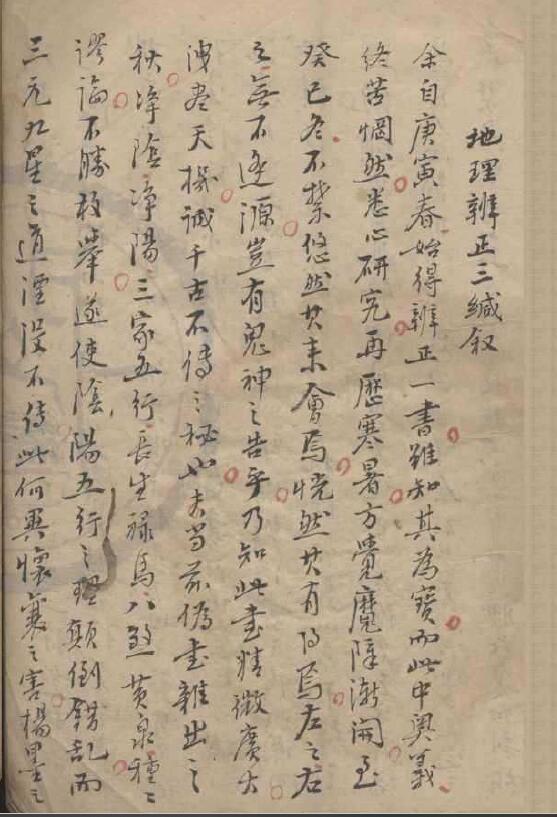 地理辨正三緘叙
余自庚寅春始得辨正一書雖知其為寶而此中奧義
終苦惘然悉心研究再歷寒暑方覺魔障漸開至
癸巳冬不禁悠然其来會焉恍然其有得焉左之右
之無不逢源豈有鬼神之告乎乃知此書精微廣大
洩盡天機誠千古不傳之秘也夫当茲偽書雜出之
秋净陰净陽三家五行長生祿馬八煞黄泉種〻
謬論不勝枚舉遂使陰陽五行之理顛倒錯乱而
三元九星之道湮没不傳此何異懷襄之害楊墨之